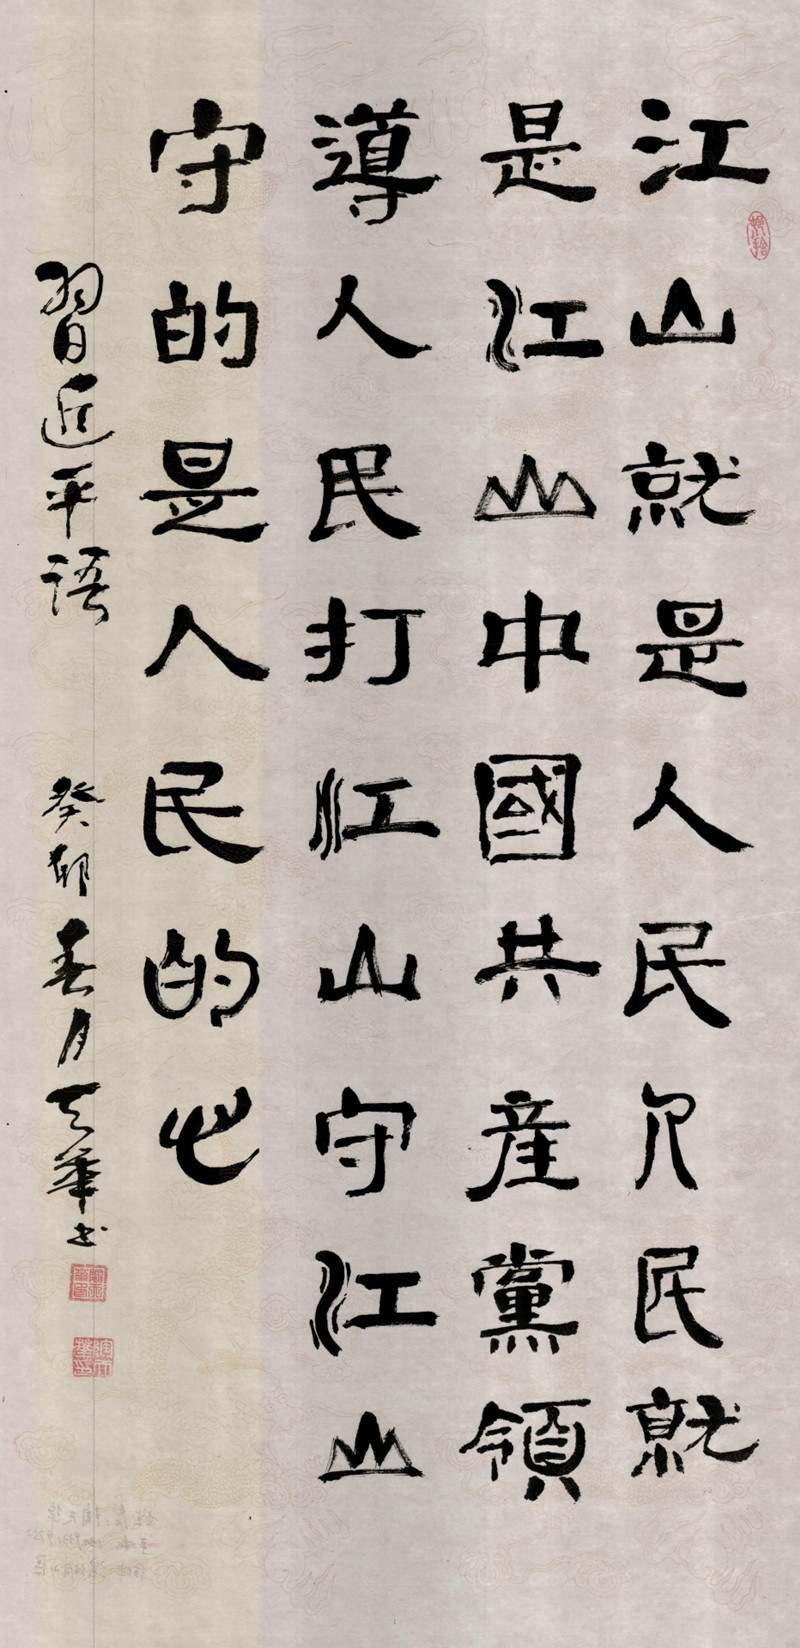 江山就是人民人民就
是江山中國共產黨領
導人民打江山守江山
守的是人民的心
習近平語 癸卯春月天華书